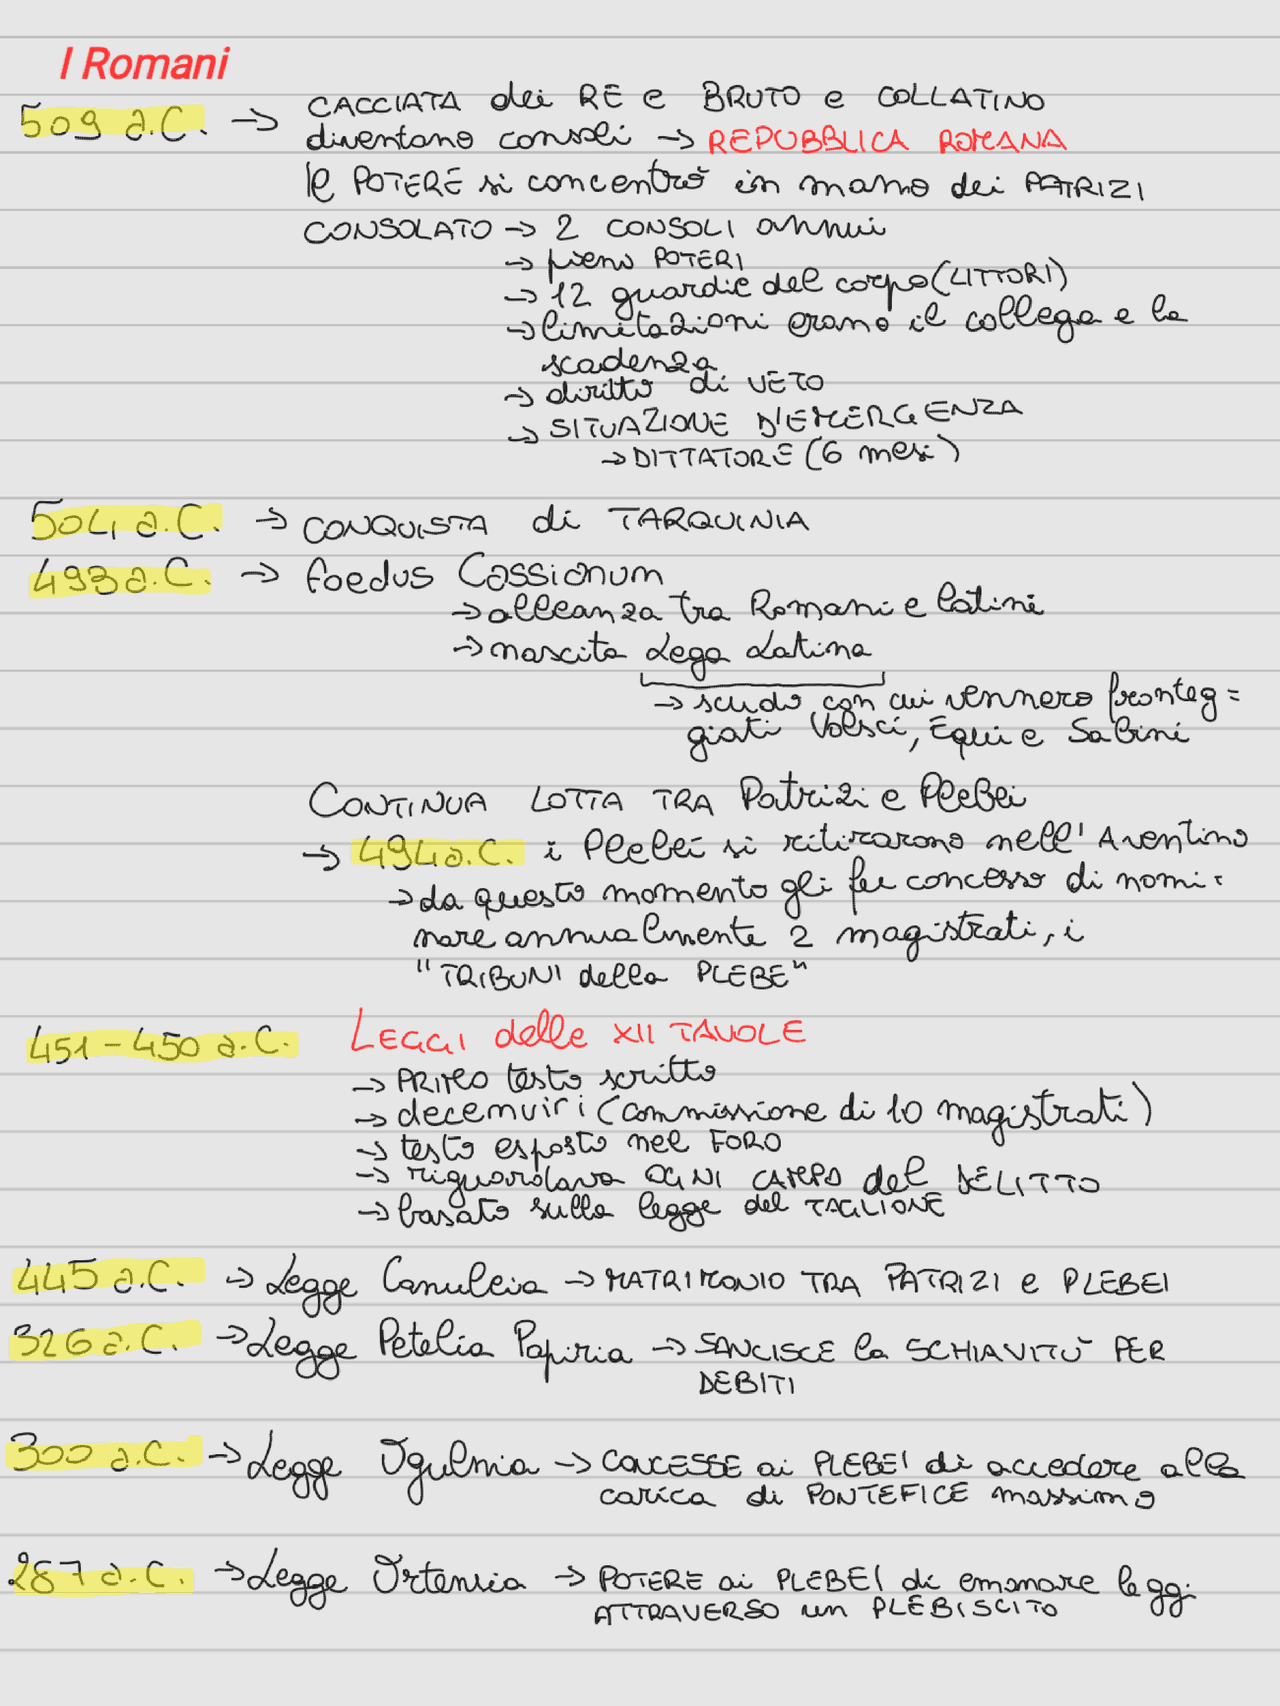 I Romani
509 a.C. → CACCIATA dei RE e BRUTO e COLLATINO
diventano consoli → REPUBBLICA ROMANA
Il POTERE si concentrò in mano dei PATRIZI
CONSOLATO → 2 CONSOLI annui
→ pieno POTERI
→ 12 guardie del corpo (LITTORI)
→ limitazioni erano il collega e la
scadenza
→ diritto di VETO
→ SITUAZIONE D'EMERGENZA
→ DITTATORE (6 mesi)
504 a.C. → CONQUISTA di TARQUINIA
493 a.C. → foedus Cassianum
→ alleanza tra Romani e latini
→ nascita Lega Latina
→ scudo con cui vennero fronteg=
giati Volsci, Equi e Sabini
CONTINUA LOTTA TRA Patrizi e Plebei
→ 494 a.C. i Plebei si ritirarono nell'Aventino
→ da questo momento gli fu concesso di nomi=
nare annualmente 2 magistrati, i
"TRIBUNI della PLEBE"
451-450 a.C. LEGGI delle XII TAVOLE
→ PRIMO testo scritto
→ decemviri (commissione di 10 magistrati)
→ testo esposto nel FORO
→ riguardava OGNI CAMPO del DELITTO
→ basato sulla legge del TAGLIONE
445 a.C. → Legge Canuleia → MATRIMONIO TRA PATRIZI e PLEBEI
326 a.C. → Legge Petelia Papiria → SANCISCE la SCHIAVITÙ PER
DEBITI
300 a.C. → Legge Ogulnia → CONCESSE ai PLEBEI di accedere alla
carica di PONTEFICE massimo
287 a.C. → Legge Ortensia → POTERE ai PLEBEI di emanare leggi
ATTRAVERSO un PLEBISCITO